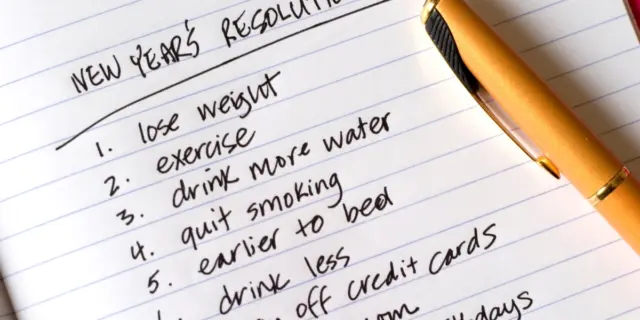 NEW YEAR'S
1. lose weight
2. exercise
3. drink more water
4. quit smoking
5. earlier to bed
drink less
off credit cards